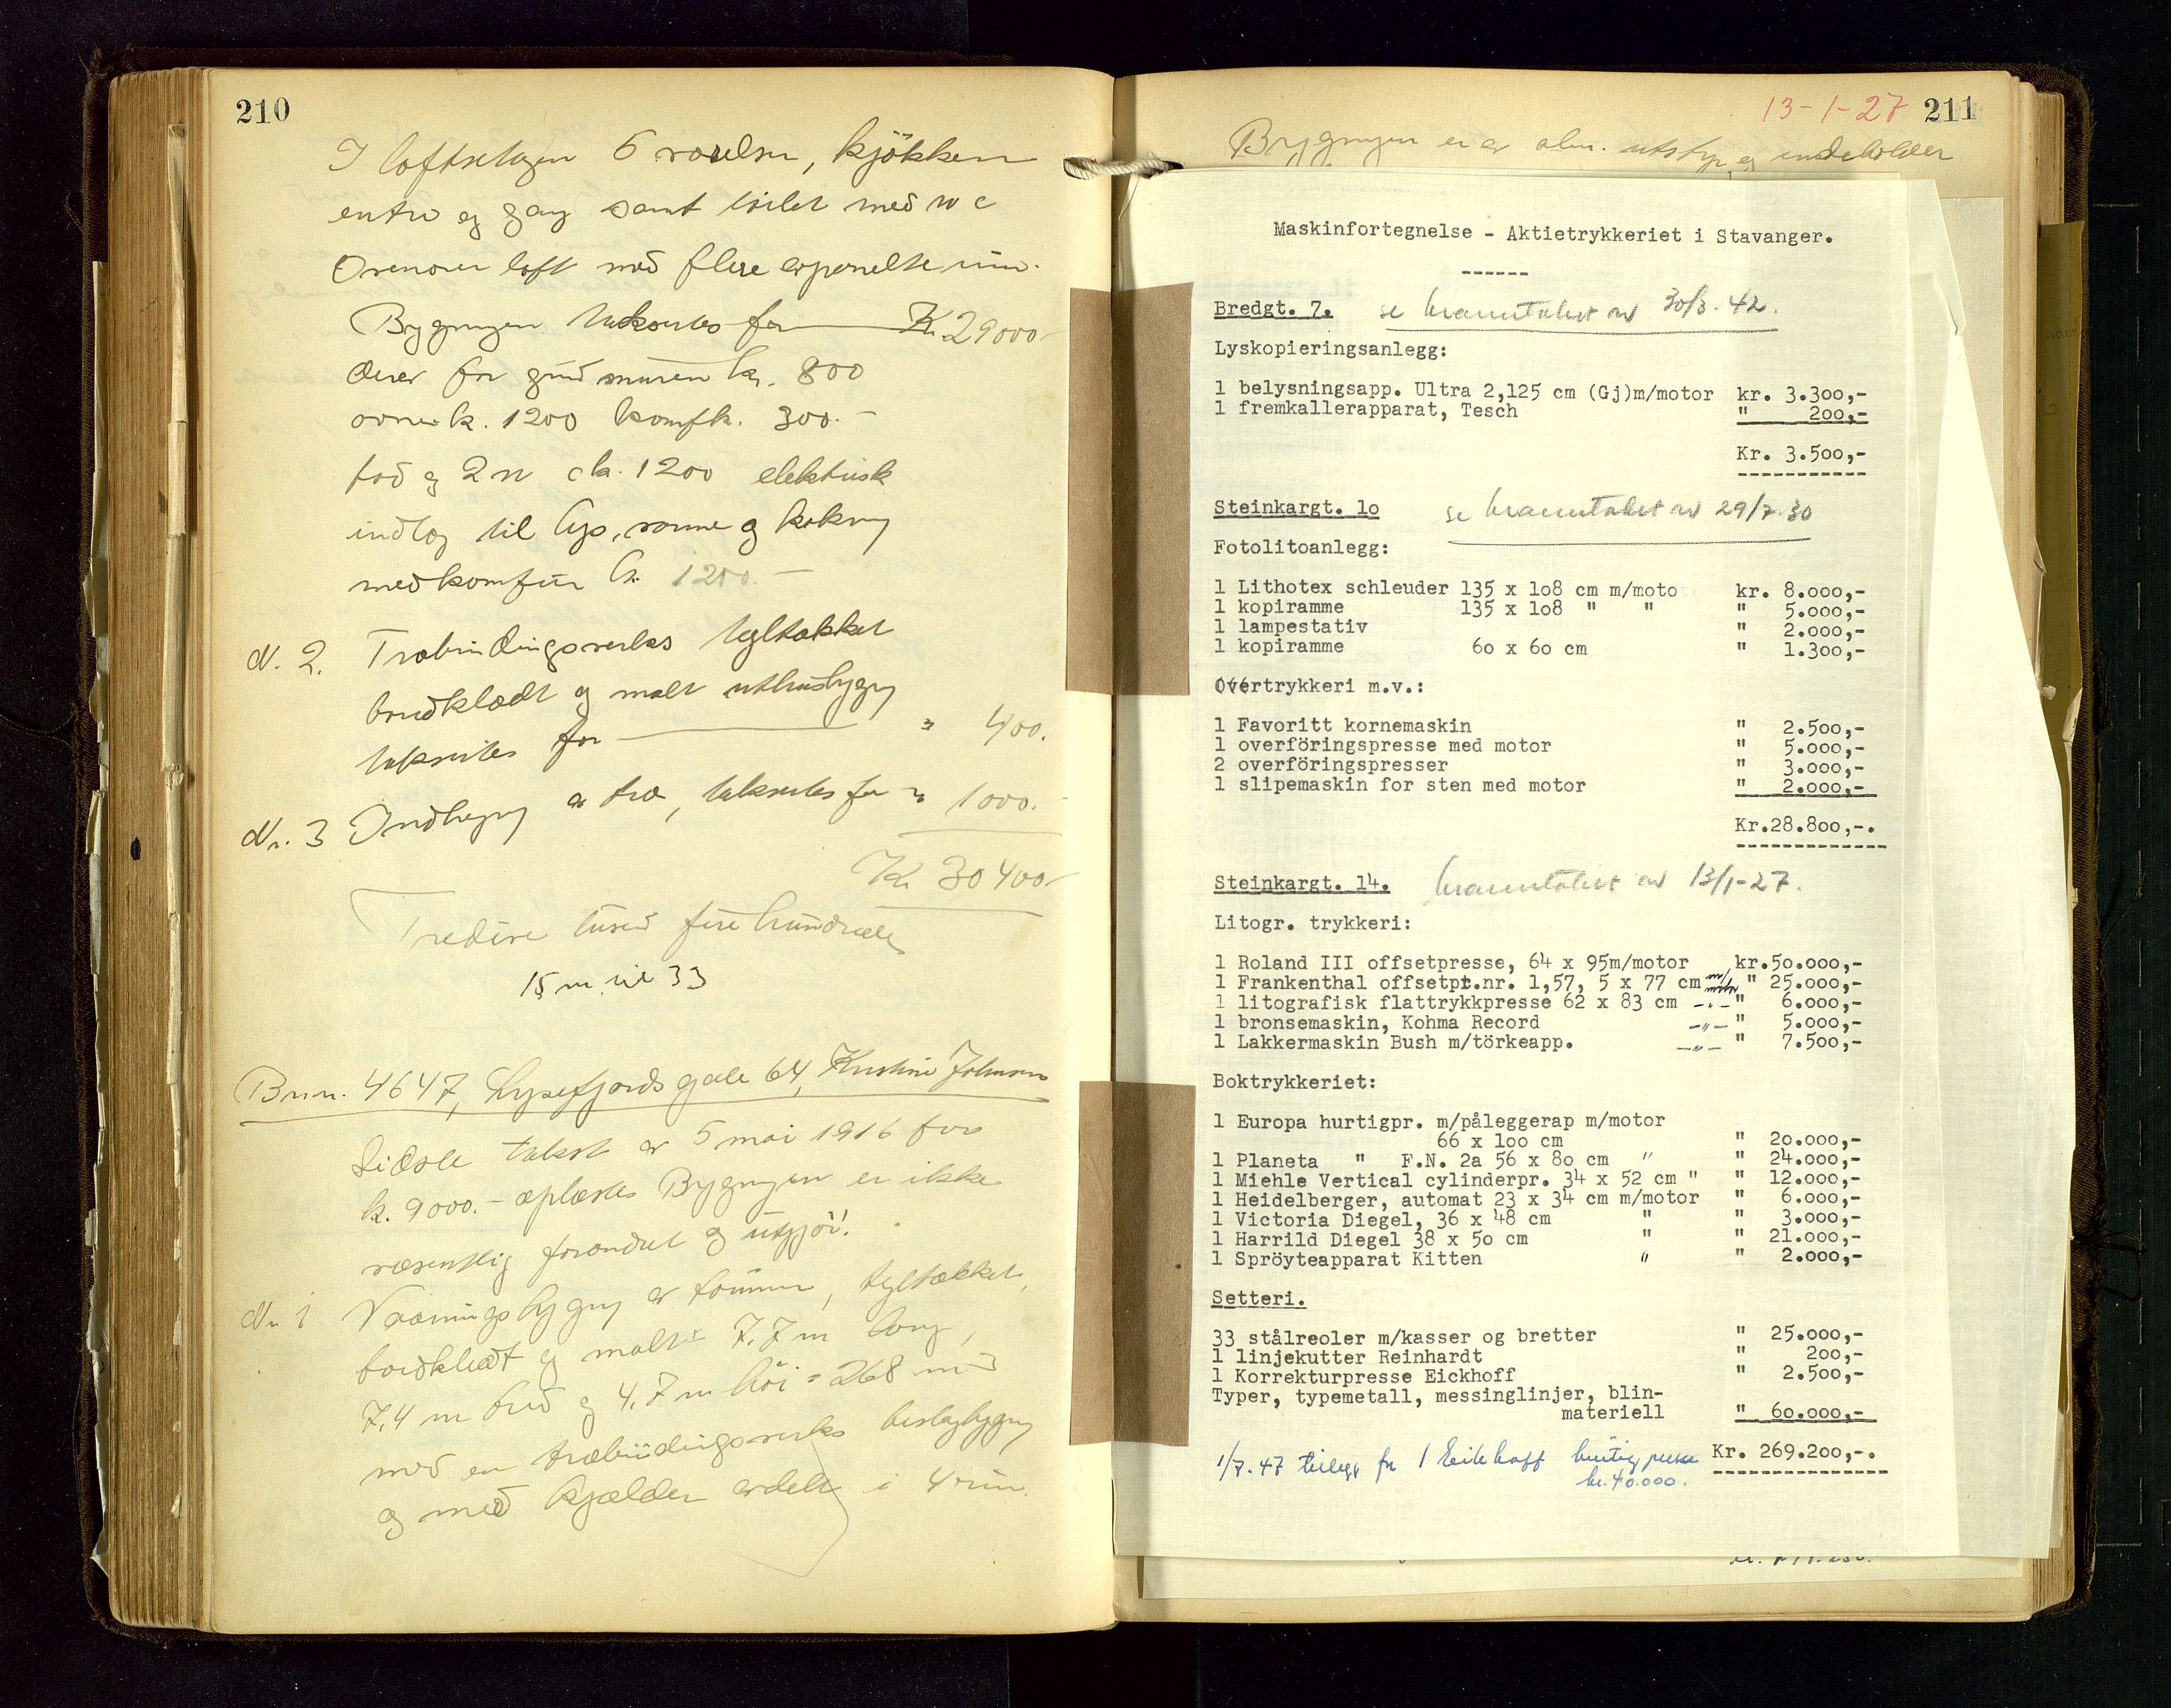 210
I loftsetagen 5 værelser, kjøkken
entre og gang samt toilet med w c
Ovenover loft med flere avpanelte rum.
Bygningen taksertes for Kr. 29000
derav for grundmuren kr. 800
ovner k. 1200 komfk. 300.-
bad og 2 w ck. 1200 elektrisk
indlæg til lys, varme og kokning
med komfür kr. 1200.-
N. 2. Træbindingsverks tegltækket
bordklædt og malt uthusbygng
taksertes for " 400.
Nr. 3 Indhegng av træ, taksertes for " 1000.-
Kr 30400-
Tredive tusen fire hundrede
15 m til 33
Br.n. 4647, Lysefjords gate 64, Kristine Johnsen
Sidste takst av 5 mai 1916 for
k. 9000.- oplæstes Bygningen er ikke
væsentlig forandret og utgjør!
Nr 1 Våningsbygng av tømmer, tegltækket,
bordklædt og malt: 7.7 m lang,
7.4 m bred og 4.7 m høi = 268 m3
med en træbindingsverks beslagbygng
og med kjælder avdelt i 4 rum.
13-1-27 211
Bygningen er av alm. utstyr og indeholder
Maskinfortegnelse - Aktietrykkeriet i Stavanger.
------
Bredgt. 7. se branntakst av 30/3-42.
Lyskopieringsanlegg:
1 belysningsapp. Ultra 2,125 cm (Gj)m/motor kr. 3.300,-
1 fremkallerapparat, Tesch " 200,-
Kr. 3.500,-
Steinkargt. 1o se branntakst av 29/7.30
Fotolitoanlegg:
1 Lithotex schleuder 135 x 1o8 cm m/moto kr. 8.000,-
1 kopiramme 135 x 1o8 " " " 5.000,-
1 lampestativ " 2.000,-
1 kopiramme 6o x 6o cm " 1.300,-
Overtrykkeri m.v.:
1 Favoritt kornemaskin " 2.500,-
1 overföringspresse med motor " 5.000,-
2 overföringspresser " 3.000,-
1 slipemaskin for sten med motor " 2.000,-
Kr.28.800,-.
Steinkargt. 14. branntakst av 13/1-27.
Litogr. trykkeri:
1 Roland III offsetpresse, 64 x 95m/motor kr.50.000,-
1 Frankenthal offsetpr.nr. 1,57, 5 x 77 cm " 25.000,-
1 litografisk flattrykkpresse 62 x 83 cm -"- " 6.000,-
1 bronsemaskin, Kohma Record -"- " 5.000,-
1 Lakkermaskin Bush m/törkeapp. -"- " 7.500,-
Boktrykkeriet:
1 Europa hurtigpr. m/påleggerap m/motor
66 x 1oo cm " 20.000,-
1 Planeta " F.N. 2a 56 x 8o cm " " 24.000,-
1 Miehle Vertical cylinderpr. 34 x 52 cm " " 12.000,-
1 Heidelberger, automat 23 x 34 cm m/motor " 6.000,-
1 Victoria Diegel, 36 x 48 cm " " 3.000,-
1 Harrild Diegel 38 x 5o cm " " 21.000,-
1 Spröyteapparat Kitten " " 2.000,-
Setteri.
33 stålreoler m/kasser og bretter " 25.000,-
1 linjekutter Reinhardt " 200,-
1 Korrekturpresse Eickhoff " 2.500,-
Typer, typemetall, messinglinjer, blin-
materiell " 60.000,-
Kr. 269.200,-.
1/7.47 tillegg for 1 Eikhoff hurtigpresse
kr. 40.000.